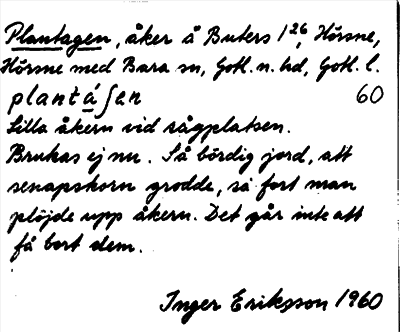 Plantagen, åker å Buters 1²⁶, Hörsne,
Hörsne med Bara sn, Gotl. n. hd, Gotl. l.
plantáʃen 60
Lilla åkern vid sågplatsen.
Brukas ej nu. Så bördig jord, att
senapskorn grodde, så fort man
plöjde upp åkern. Det går inte att
få bort dem.
Inger Eriksson 1960